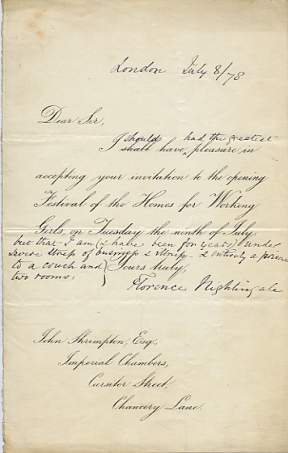 London July 8/78
Dear Sir,
I should had the greatest
shall have pleasure in
accepting your invitation to the opening
Festival of the Homes for Working
Girls, on Tuesday the ninth of July.
but that I am (& have been for years) under
severe stress of business & illness. & entirely a prisoner
to a couch and Yours truly,
two rooms.
Florence Nightingale
John Shrimpton, Esq.,
Imperial Chambers,
Cursitor Street,
Chancery Lane.